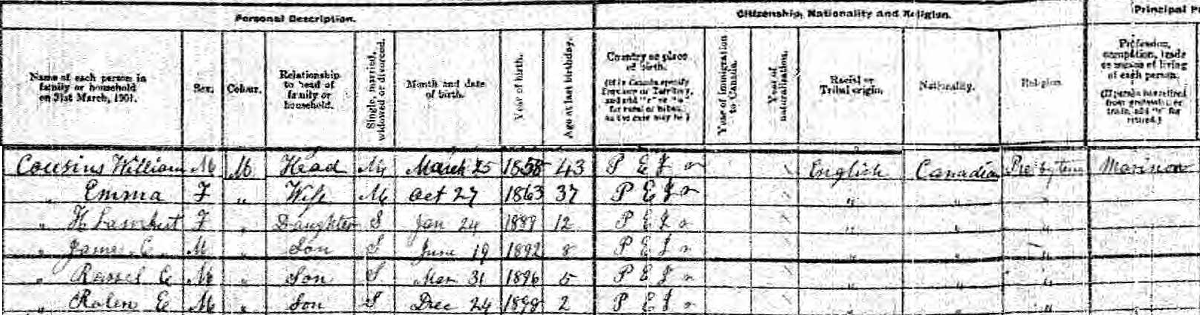 Personal Description. Citizenship, Nationality and Religion. Principal
Name of each person in family or household on 31st March, 1901. Sex. Colour. Relationship to head of family or household. Single, married, widowed or divorced. Month and date of birth. Year of birth. Age at last birthday. Country or place of birth. (If in Canada specify Province or Territory, and add "r" or "u" for rural or urban, as the case may be.) Year of immigration to Canada. Year of naturalization. Racial or Tribal origin. Nationality. Religion. Profession, occupation, trade or means of living of each person. (If person has retired from profession or trade, add "r" for retired.)
Cousins William M Head M March 25 1858 43 P E I English Canadian Presbytern
" Emma F " Wife M Oct 27 1863 37 P E I " " "
" F " Daughter S Jan 24 12 P E I " " "
" James C. M " Son S June 19 1892 8 P E I " " "
" Russel C M " Son S Mar 31 1896 5 P E I " " "
" E M " Son S Dec 24 1898 2 P E I " " "